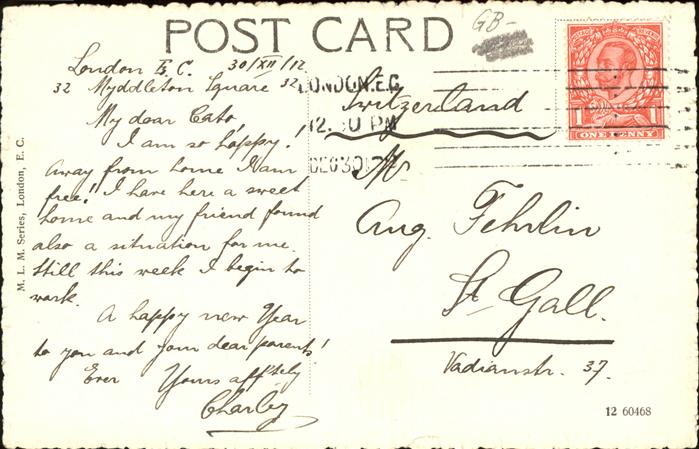 POST CARD
GB-
London E.C. 30/XII/12
32 Myddleton Square 32
My dear Cato,
I am so happy!
Away from home I am
free! I have here a sweet
home and my friend found
also a situation for me.
Still this week I begin to
work.
A happy new Year
to you and your dear parents!
Ever Yours aff'tely
Charley
M. L. M. Series, London, E. C.
LONDON.E.C.
12. 0 PM
DEC 30 12
POSTAGE REVENUE
1 ONE PENNY
Switzerland
Mr
Aug. Fehrlin
St. Gall.
Vadianstr. 37.
12 60468